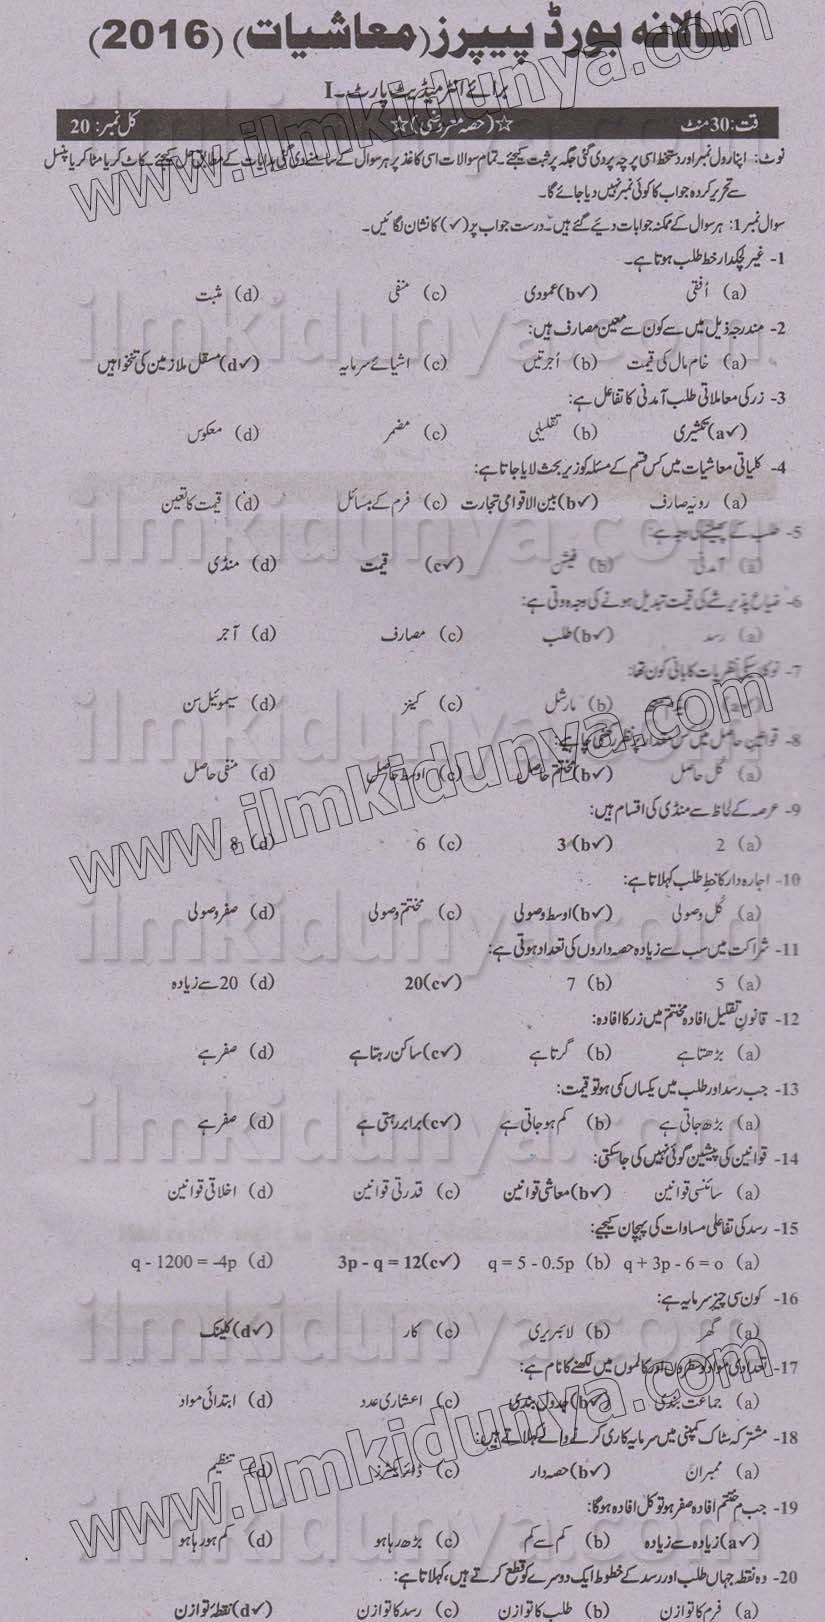 سالانہ بورڈ پیپرز (معاشیات) (2016)
برائے انٹرمیڈیٹ پارٹ ۔I
قت: 30 منٹ ☆(حصہ معروضی)☆ کل نمبر: 20
نوٹ: اپنا رول نمبر اور دستخط اسی پرچہ پر دی گئی جگہ پر ثبت کیجئے۔ تمام سوالات اسی کاغذ پر ہر سوال کے سامنے دی گئی ہدایات کے مطابق حل کیجئے۔ کاٹ کر یا مٹا کر یا پنسل
سے تحریر کردہ جواب کا کوئی نمبر نہیں دیا جائے گا۔
سوال نمبر 1: ہر سوال کے ممکنہ جوابات دیئے گئے ہیں۔ درست جواب پر (✓) کا نشان لگائیں۔
1- غیر لچکدار خط طلب ہوتا ہے۔
(a) اُفقی (b✓) عمودی (c) منفی (d) مثبت
2- مندرجہ ذیل میں سے کون سے معین مصارف ہیں:
(a) خام مال کی قیمت (b) اُجرتیں (c) اشیائے سرمایہ (d✓) مستقل ملازمین کی تنخواہیں
3- زر کی معاملاتی طلب آمدنی کا تفاعل ہے:
(a✓) تکثیری (b) تقلیلی (c) مضمر (d) معکوس
4- کلیاتی معاشیات میں کس قسم کے مسئلہ کو زیر بحث لایا جاتا ہے:
(a) رویہ صارف (b✓) بین الاقوامی تجارت (c) فرم کے مسائل (d) قیمت کا تعین
5- طلب کے پھیلنے کی وجہ ہے:
(a) آمدنی (b) فیشن (c✓) قیمت (d) منڈی
6- ضیاع پذیر شے کی قیمت تبدیل ہونے کی وجہ ہوتی ہے:
(a) رسد (b✓) طلب (c) مصارف (d) آجر
7- نوکلاسیکی نظریات کا بانی کون تھا:
(b) مارشل (c) کینز (d) سیموئیل سن
8- قوانین حاصل میں کس مقدار پر نظر رکھنی چاہیے:
(a) کُل حاصل (b✓) مختتم حاصل (c) اوسط حاصل (d) منفی حاصل
9- عرصہ کے لحاظ سے منڈی کی اقسام ہیں:
(a) 2 (b✓) 3 (c) 6 (d) 8
10- اجارہ دار کا خط طلب کہلاتا ہے:
(a) کُل وصولی (b✓) اوسط وصولی (c) مختتم وصولی (d) صفر وصولی
11- شراکت میں سب سے زیادہ حصہ داروں کی تعداد ہوتی ہے:
(a) 5 (b) 7 (c✓) 20 (d) 20 سے زیادہ
12- قانونِ تقلیل افادہ مختتم میں زر کا افادہ:
(a) بڑھتا ہے (b) گرتا ہے (c✓) ساکن رہتا ہے (d) صفر ہے
13- جب رسد اور طلب میں یکساں کمی ہو تو قیمت:
(a) بڑھ جاتی ہے (b) کم ہو جاتی ہے (c✓) برابر رہتی ہے (d) صفر ہے
14- قوانین کی پیشین گوئی نہیں کی جا سکتی:
(a) سائنسی قوانین (b✓) معاشی قوانین (c) قدرتی قوانین (d) اخلاقی قوانین
15- رسد کی تفاعلی مساوات کی پہچان کیجیے:
(a) q + 3p - 6 = o (b) q = 5 - 0.5p (c✓) 3p - q = 12 (d) q - 1200 = -4p
16- کون سی چیز سرمایہ ہے:
(a) گھر (b) لائبریری (c) کار (d✓) کلینک
17- تعدادی مواد کو سطروں اور کالموں میں لکھنے کا نام ہے:
(a) جماعت بندی (b✓) جدول بندی (c) اعشاری عدد (d) ابتدائی مواد
18- مشترکہ سٹاک کمپنی میں سرمایہ کاری کرنے والے کہلاتے ہیں:
(a) ممبران (b✓) حصہ دار (c) ڈائریکٹرز (d) تنظیم
19- جب مختتم افادہ صفر ہو تو کل افادہ ہوگا:
(a✓) زیادہ سے زیادہ (b) کم سے کم (c) بڑھ رہا ہو (d) کم ہو رہا ہو
20- وہ نقطہ جہاں طلب اور رسد کے خطوط ایک دوسرے کو قطع کرتے ہیں، کہلاتا ہے:
(a) فرم کا توازن (b) طلب کا توازن (c) رسد کا توازن (d✓) نقطۂ توازن
www.ilmkidunya.com
ilmkidunya.com
ilmkidunya.com
ilmkidunya.com
www.ilmkidunya.com
ilmkidunya.com
ilmkidunya.com
ilmkidunya.com
www.ilmkidunya.com